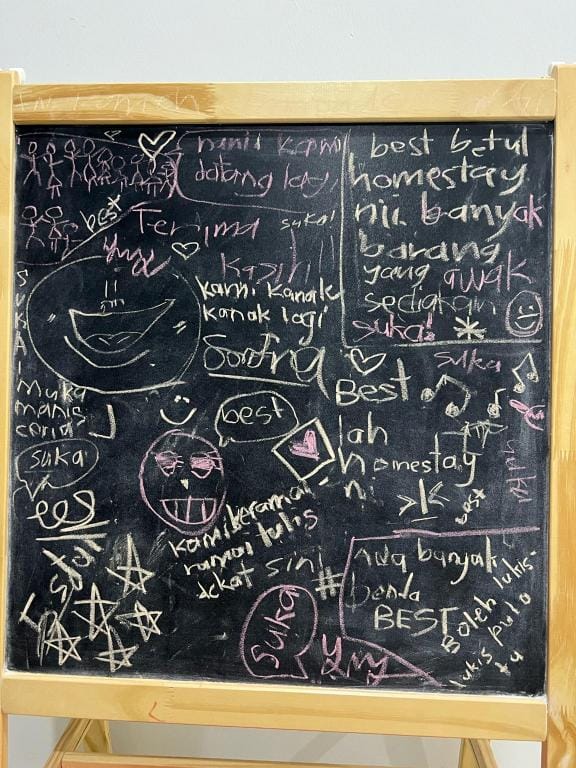 nanti kami
datang lagi
best
Terima
suka!
Kasih
SUKA!
kami kanak
kanak lagi
best betul
homestay
nii banyak
barang
yang awak
sediakan
suka!
suka
Muka
manis
ceria
suka
best
Best
lah
homestay
ni
best
suka
kami beramai
ramai lukis
dekat sini
#
Suka
Ada banyak
benda
BEST
Boleh lukis-
lukis pula
tu